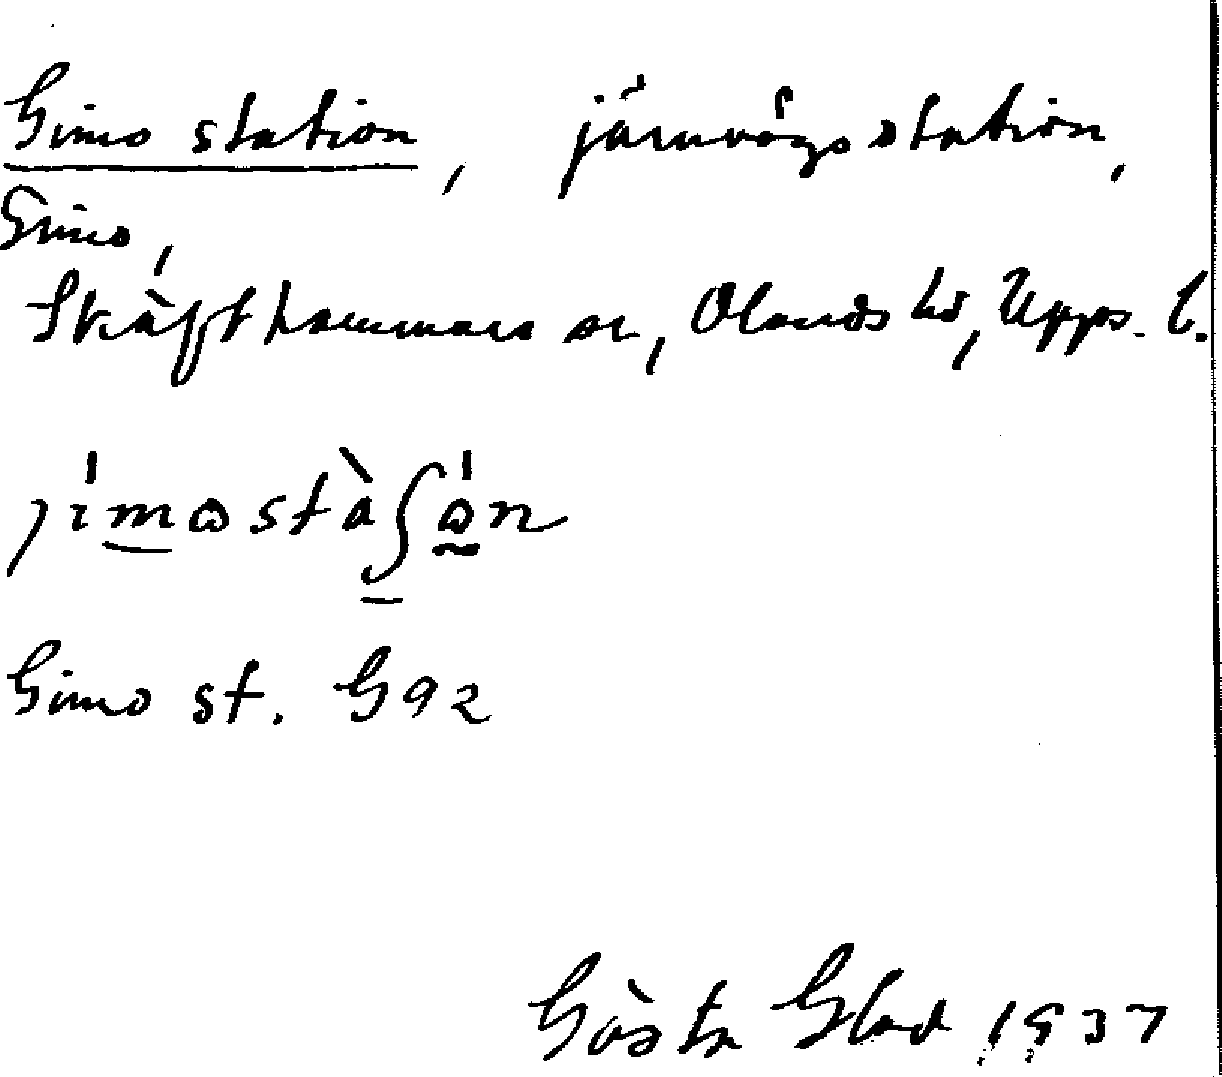 Gimo station, järnvägsstation,
Gimo,
Skäfthammars sn, Olands hd, Upps. l.
jímɷstàʃɷ́n
Gimo st. G92
Gösta Blad 1937